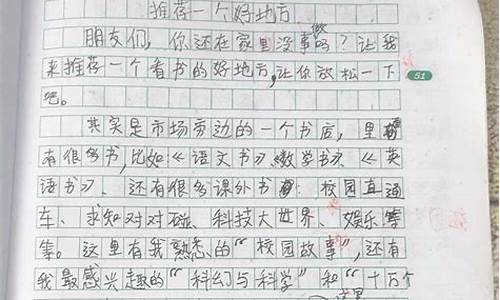 推荐一个好地方
朋友们，你还在家里没事做吗？让我
来推荐一个看书的好地方，让你放松一下
51
吧。
其实是市场旁边的一个书店，里
有很多书，比如《语文书》、《数学书》、《英
语书》、还有很多课外书：校园直通
车、求知对对碰、科技大世界、娱乐等
等。这里有我熟悉的“校园故事”，还有
我最感兴趣的“科幻与科学”和“十万个
这里